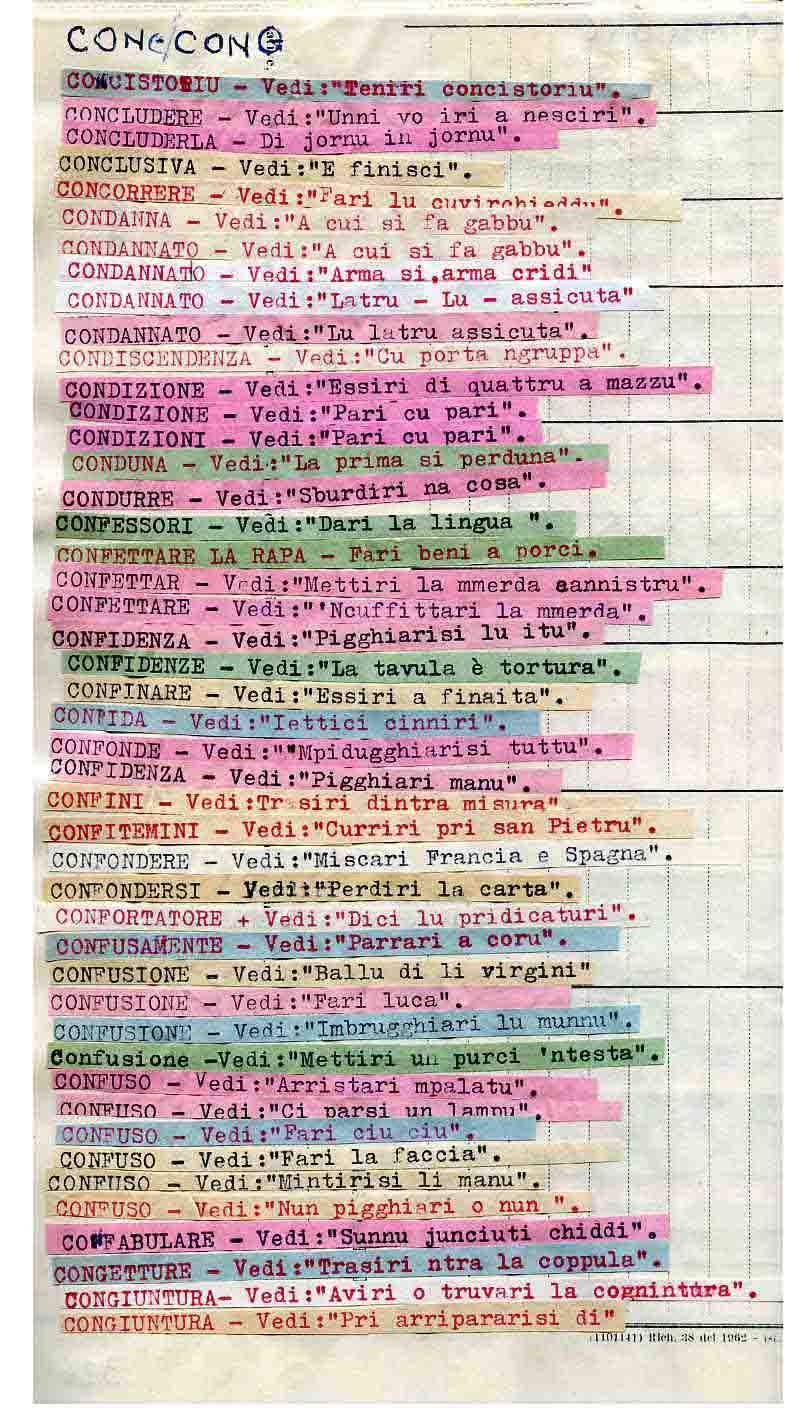 CONc/CONG
CONCISTORIU - Vedi:"Teniri concistoriu".
CONCLUDERE - Vedi:"Unni vo iri a nesciri".
CONCLUDERLA - Di jornu in jornu".
CONCLUSIVA - Vedi:"E finisci".
CONCORRERE - Vedi:"Fari lu cuvirchieddu".
CONDANNA - Vedi:"A cui si fa gabbu".
CONDANNATO - Vedi:"A cui si fa gabbu".
CONDANNATO - Vedi:"Arma si,arma cridi"
CONDANNATO - Vedi:"Latru - Lu - assicuta"
CONDANNATO - Vedi:"Lu latru assicuta".
CONDISCENDENZA - Vedi:"Cu porta ngruppa".
CONDIZIONE - Vedi:"Essiri di quattru a mazzu".
CONDIZIONE - Vedi:"Pari cu pari".
CONDIZIONI - Vedi:"Pari cu pari".
CONDUNA - Vedi:"La prima si perduna".
CONDURRE - Vedi:"Sburdiri na cosa".
CONFESSORI - Vedi:"Dari la lingua ".
CONFETTARE LA RAPA - Fari beni a porci.
CONFETTAR - Vedi:"Mettiri la mmerda cannistru".
CONFETTARE - Vedi:"'Ncuffittari la mmerda".
CONFIDENZA - Vedi:"Pigghiarisi lu itu".
CONFIDENZE - Vedi:"La tavula è tortura".
CONFINARE - Vedi:"Essiri a finaita".
CONFIDA - Vedi:"Iettici cinniri".
CONFONDE - Vedi:"'Mpidugghiarisi tuttu".
CONFIDENZA - Vedi:"Pigghiari manu".
CONFINI - Vedi:Trasiri dintra misura"
CONFITEMINI - Vedi:"Curriri pri san Pietru".
CONFONDERE - Vedi:"Miscari Francia e Spagna".
CONFONDERSI - Vedi:"Perdiri la carta".
CONFORTATORE + Vedi:"Dici lu pridicaturi".
CONFUSAMENTE - Vedi:"Parrari a coru".
CONFUSIONE - Vedi:"Ballu di li virgini"
CONFUSIONE - Vedi:"Fari luca".
CONFUSIONE - Vedi:"Imbrugghiari lu munnu".
Confusione -Vedi:"Mettiri un purci 'ntesta".
CONFUSO - Vedi:"Arristari mpalatu".
CONFUSO - Vedi:"Ci parsi un lampu".
CONFUSO - Vedi:"Fari ciu ciu".
CONFUSO - Vedi:"Fari la faccia".
CONFUSO - Vedi:"Mintirisi li manu".
CONFUSO - Vedi:"Nun pigghiari o nun ".
CONFABULARE - Vedi:"Sunnu junciuti chiddi".
CONGETTURE - Vedi:"Trasiri ntra la coppula".
CONGIUNTURA- Vedi:"Aviri o truvari la cognintura".
CONGIUNTURA - Vedi:"Pri arripararisi di"
(1101141) Rich. 38 del 1962 -